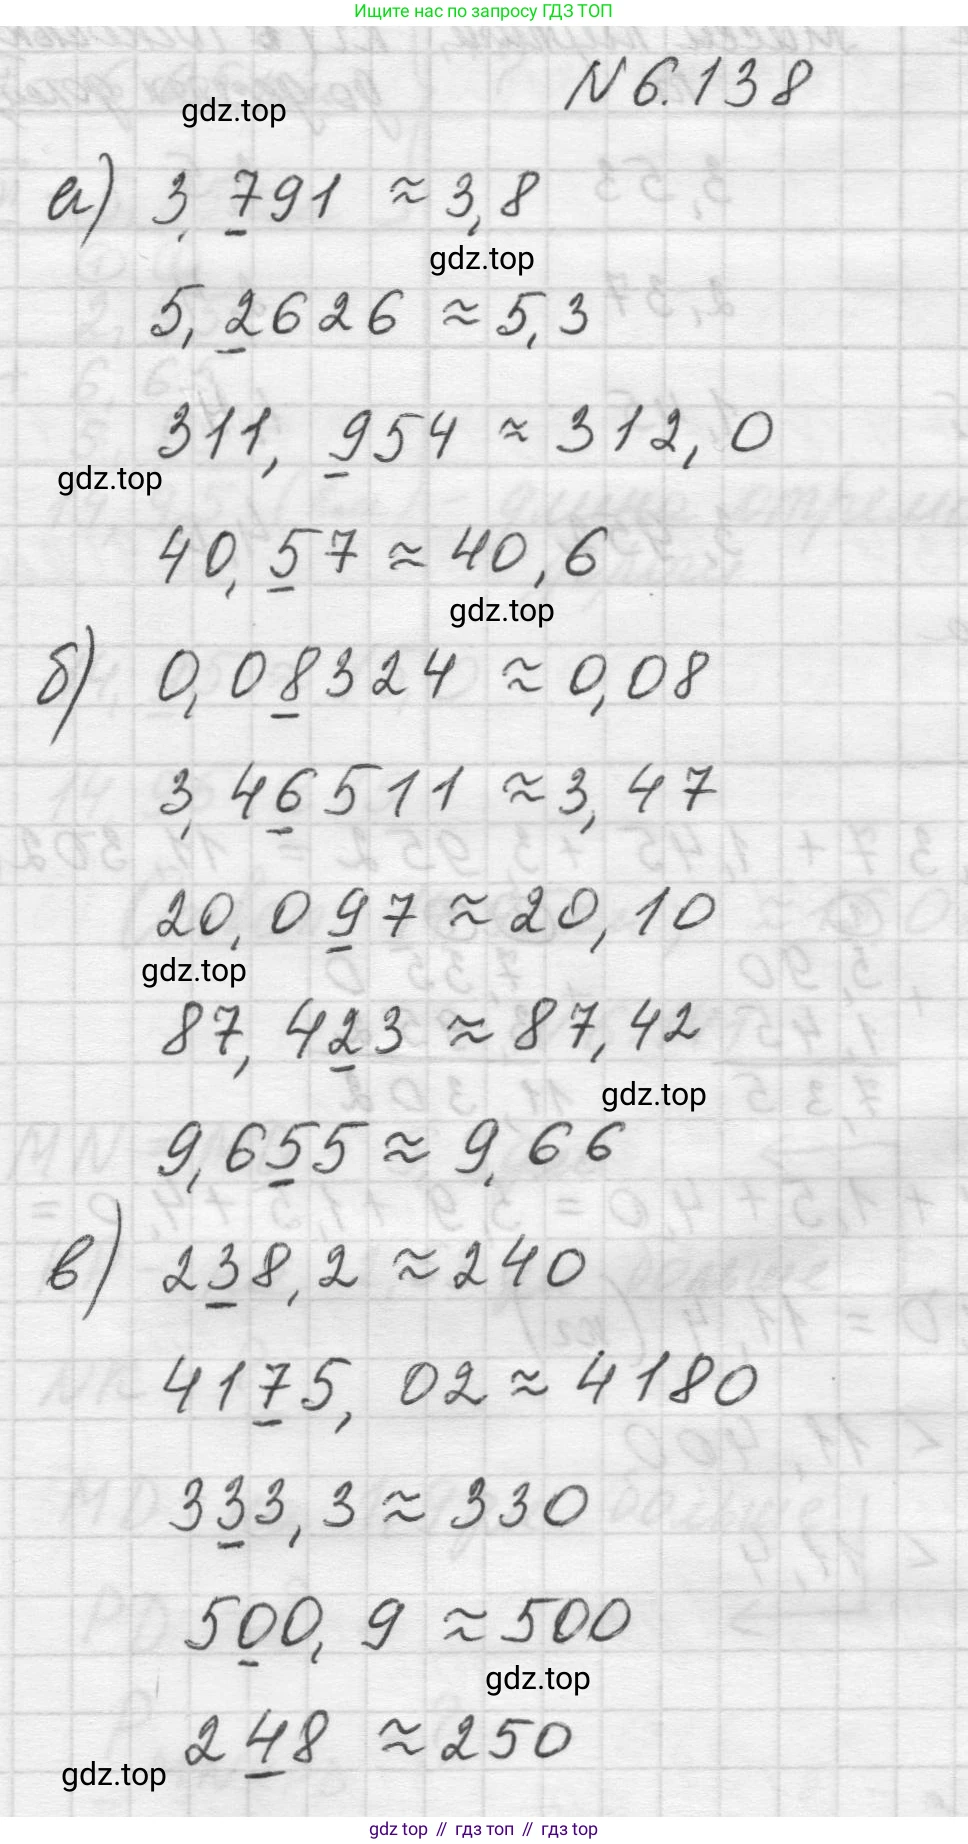 Ищите нас по запросу ГДЗ ТОП
N 6.138
gdz.top
а) 3,791 ≈ 3,8
gdz.top
5,2626 ≈ 5,3
311,954 ≈ 312,0
gdz.top
40,57 ≈ 40,6
gdz.top
б) 0,08324 ≈ 0,08
3,46511 ≈ 3,47
20,097 ≈ 20,10
gdz.top
87,423 ≈ 87,42
gdz.top
9,655 ≈ 9,66
в) 238,2 ≈ 240
4175,02 ≈ 4180
333,3 ≈ 330
500,9 ≈ 500
gdz.top
248 ≈ 250
gdz.top
gdz top // гдз топ // gdz top